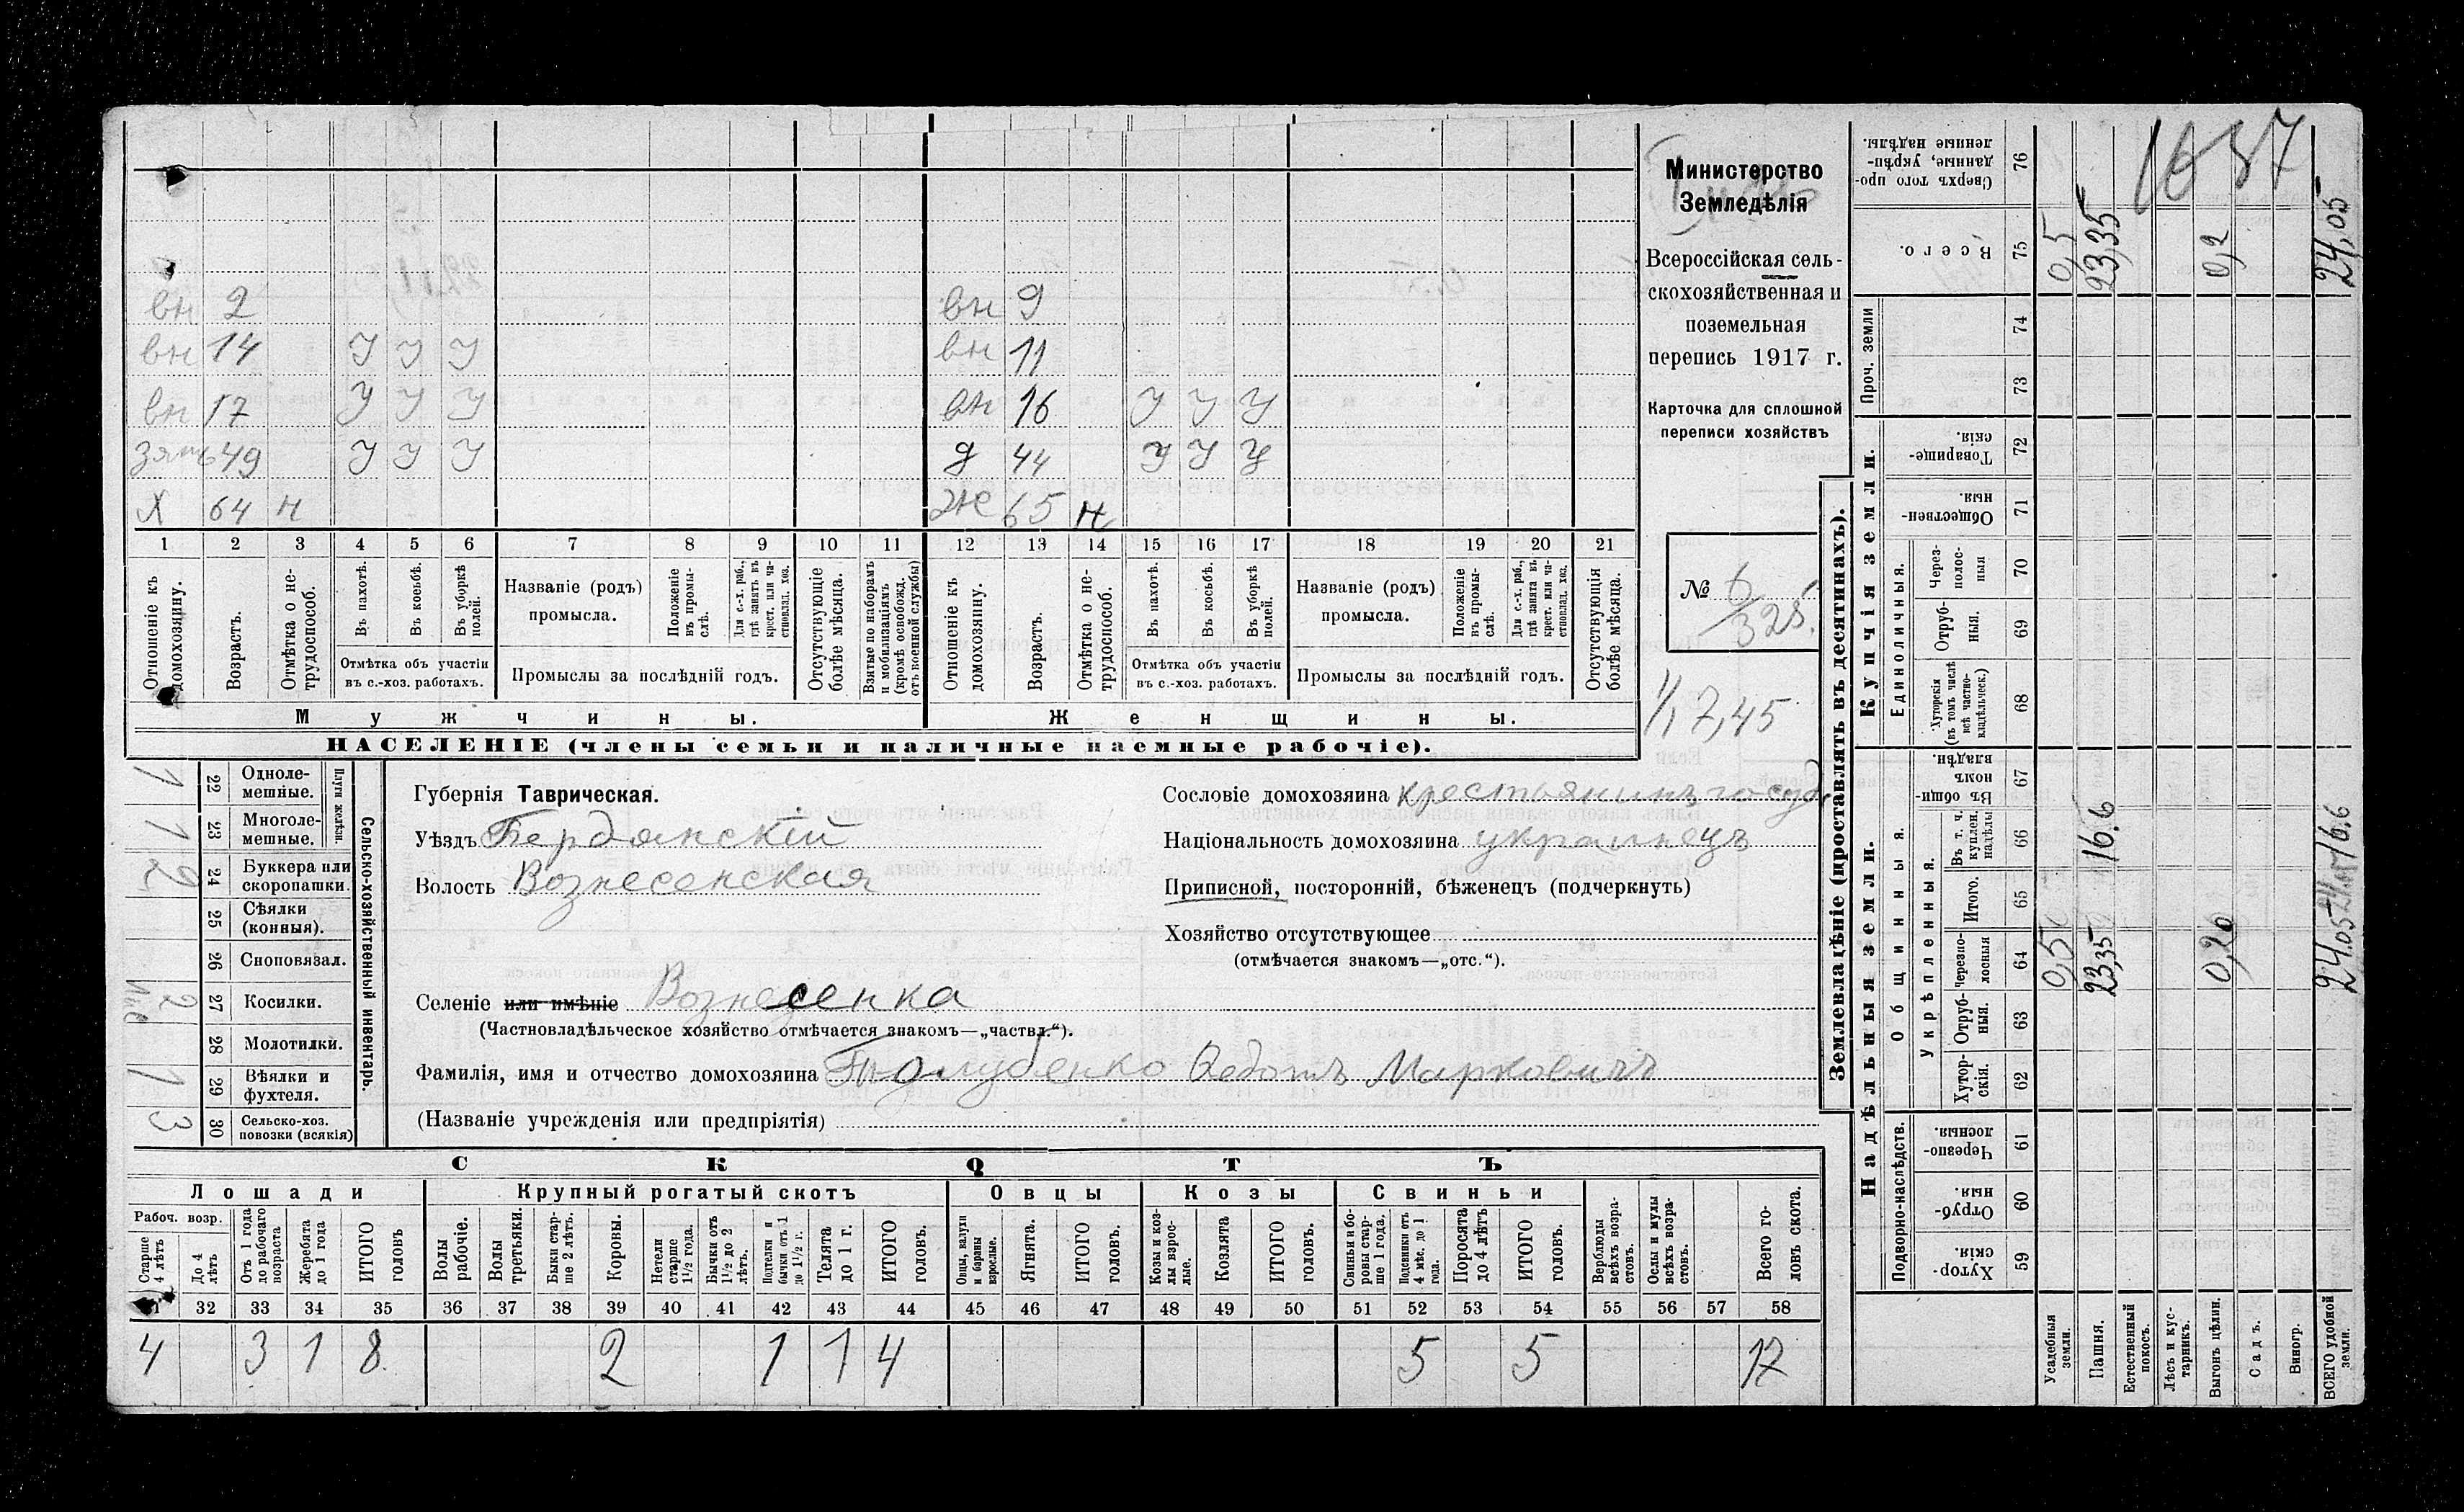 вн 2 вн 9
вн 14 У У У вн 11
вн 17 У У У вн 16 У У У
зять 49 У У У д 44 У У У
Х 64 н Ж 65 н
1 2 3 4 5 6 7 8 9 10 11 12 13 14 15 16 17 18 19 20 21
Отношеніе къ домохозяину.
Возрастъ.
Отмѣтка о не-трудоспособ.
Въ пахотѣ.
Въ косьбѣ.
Въ уборкѣ полей.
Отмѣтка объ участіи
въ с.-хоз. работахъ.
Названіе (родъ)
промысла.
Положеніе въ промы-слѣ.
Для с.-х. раб., гдѣ занятъ въ крест. или ча-стновлад. хоз.
Промыслы за послѣдній годъ.
Отсутствующіе болѣе мѣсяца.
Взятые по наборамъ и мобилизаціямъ (кромѣ освобожд. отъ военной службы)
Отношеніе къ домохозяину.
Возрастъ.
Отмѣтка о не-трудоспособ.
Въ пахотѣ.
Въ косьбѣ.
Въ уборкѣ полей.
Отмѣтка объ участіи
въ с.-хоз. работахъ.
Названіе (родъ)
промысла.
Положеніе въ промы-слѣ.
Для с.-х. раб., гдѣ занятъ въ крест. или ча-стновлад. хоз.
Промыслы за послѣдній годъ.
Отсутствующія болѣе мѣсяца.
Мужчины. Женщины.
НАСЕЛЕНІЕ (члены семьи и наличные наемные рабочіе).
Министерство
Земледѣлія
Всероссійская сель-
скохозяйственная и
поземельная
перепись 1917 г.
Карточка для сплошной
переписи хозяйствъ
№ 6
325
17,45
Сельско-хозяйственный инвентарь.
Плуги желѣзн.
1 22 Однолемешные.
1 23 Многолемешные.
2 24 Буккера или скоропашки.
25 Сѣялки (конныя).
26 Сноповязал.
2 27 Косилки.
28 Молотилки.
1 29 Вѣялки и фухтеля.
3 30 Сельско-хоз. повозки (всякія)
Губернія Таврическая.
Уѣздъ Бердянскій
Волость Вознесенская
Сословіе домохозяина крестьянинъ госуд.
Національность домохозяина украинецъ
Приписной, посторонній, бѣженецъ (подчеркнуть)
Хозяйство отсутствующее
(отмѣчается знакомъ—„отс.“).
Селеніе или имѣніе Вознесенка
(Частновладѣльческое хозяйство отмѣчается знакомъ—„частвл.“).
Фамилія, имя и отчество домохозяина Федотъ Марковичъ
(Названіе учрежденія или предпріятія)
СКОТЪ
Лошади Крупный рогатый скотъ Овцы Козы Свиньи
Рабоч. возр.
Старше 4 лѣтъ
До 4 лѣтъ
Отъ 1 года до рабочаго возраста
Жеребята до 1 года
ИТОГО головъ
Волы рабочіе.
Волы третьяки.
Быки стар-ше 2 лѣтъ.
Коровы.
Нетели старше 1½ года.
Бычки отъ 1½ до 2 лѣтъ.
Подтелки и бычки отъ 1 до 1½ г.
Телята до 1 г.
ИТОГО головъ.
Овцы, валухи и бараны взрослые.
Ягнята.
ИТОГО головъ.
Козы и коз-лы взрос-лые.
Козлята
ИТОГО головъ.
Свиньи и бо-ровы стар-ше 1 года.
Подсвинки отъ 4 мѣс. до 1 года.
Поросята до 4 лѣтъ
ИТОГО головъ.
Верблюды всѣхъ возра-стовъ.
Ослы и мулы всѣхъ возра-стовъ.
Всего го-ловъ скота.
32 33 34 35 36 37 38 39 40 41 42 43 44 45 46 47 48 49 50 51 52 53 54 55 56 57 58
4 3 1 8 2 1 1 4 5 5 17
Землевладѣніе (проставлять въ десятинахъ).
Купчія земли.
Надѣльныя земли.
Сверхъ того про-данные, укрѣп-ленные надѣлы. 76
Всего. 75 0,5 23,35 0,2 24,05
Проч. земли 74
73
Товарище-скія. 72
Обществен-ныя. 71
Единоличныя.
Через-полос-ныя 70
Отруб-ныя. 69
Хуторскія (въ томъ числѣ всѣ частно-владѣльческ.) 68
Общинныя.
Въ общи-номъ владѣн. 67
Укрѣпленныя.
Въ т. ч. куплен. надѣлы 66 16.6 16.6
Итого. 65
Черезпо-лосныя 64 0,5 23,35 0,20 24.05
Отруб-ныя. 63
Хутор-скія. 62
Подворно-наслѣдств.
Черезпо-лосныя. 61
Отруб-ныя. 60
Хутор-скія 59
Усадебныя земли.
Пашня.
Естественный покосъ.
Лѣсъ и кус-тарникъ.
Выгонъ цѣлин.
Садъ.
Виногр.
ВСЕГО удобной земли.